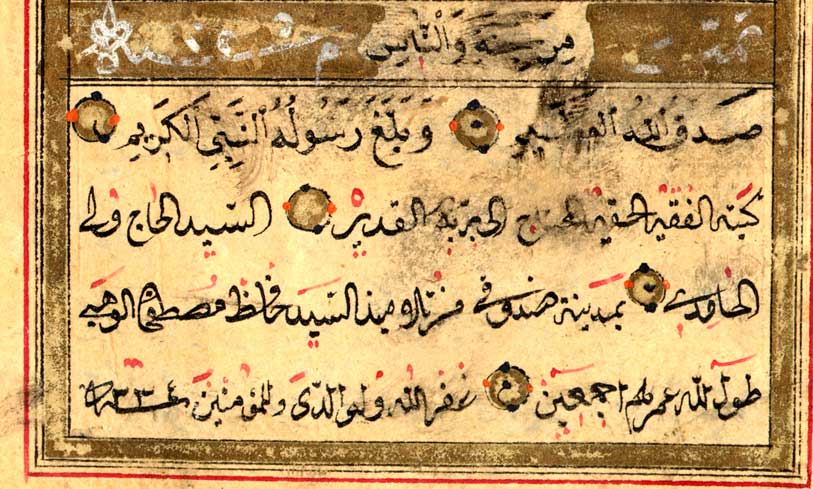 من الجنة وَالنَّاسِ
صَدَقَ اللهُ العظيم وَبَلَّغَ رَسُولُهُ النَّبِيِّ الْكَرِيمِ
كتبه الفقير الحقير المحتاج الى ربه القدير السيد الحاج ولي
الحامدي بمدينة من تلاميذ السيد حافظ مصطفى الوهبي
طول الله عمرهم اجمعين غفر الله ولوالدى وللمؤمنين